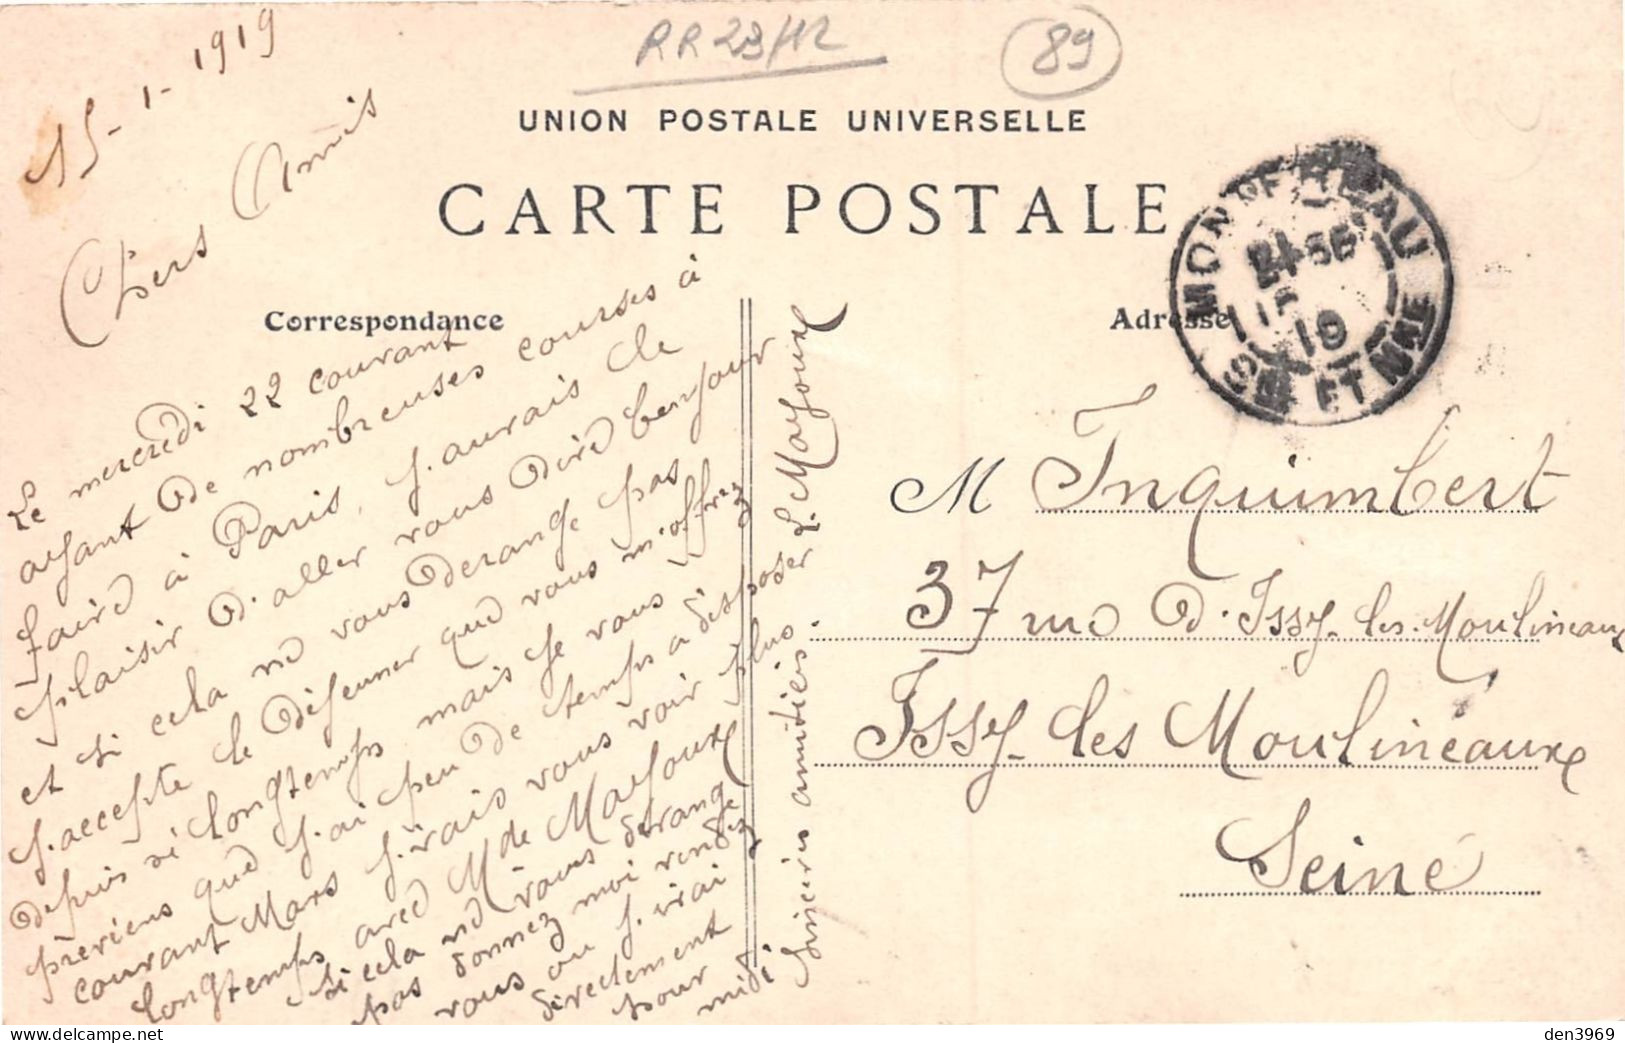 RR 23/12
89
15-1-1919
UNION POSTALE UNIVERSELLE
CARTE POSTALE
Chers Amis
Correspondance
Adresse
Le mercredi 22 courant
ayant de nombreuses courses à
faire à Paris, j'aurais le
plaisir d'aller vous dire bonjour
et si cela ne vous derange pas
j'accepte le déjeuner que vous m'offrez
depuis si longtemps mais je vous
préviens que j'ai peu de temps a disposer
courant Mars j'irais vous voir plus
longtemps avec Mr de Mayoux
si cela ne vous derange
pas donnez moi rendez
vous ou j'irai
directement
pour
midi
Sincères amitiés. L. Mayoux
M Inquimbert
37 rue d'Issy-les-Moulineaux
Issy-les Moulineaux
Seine
MONTEREAU
SNE ET MNE
19
den3969